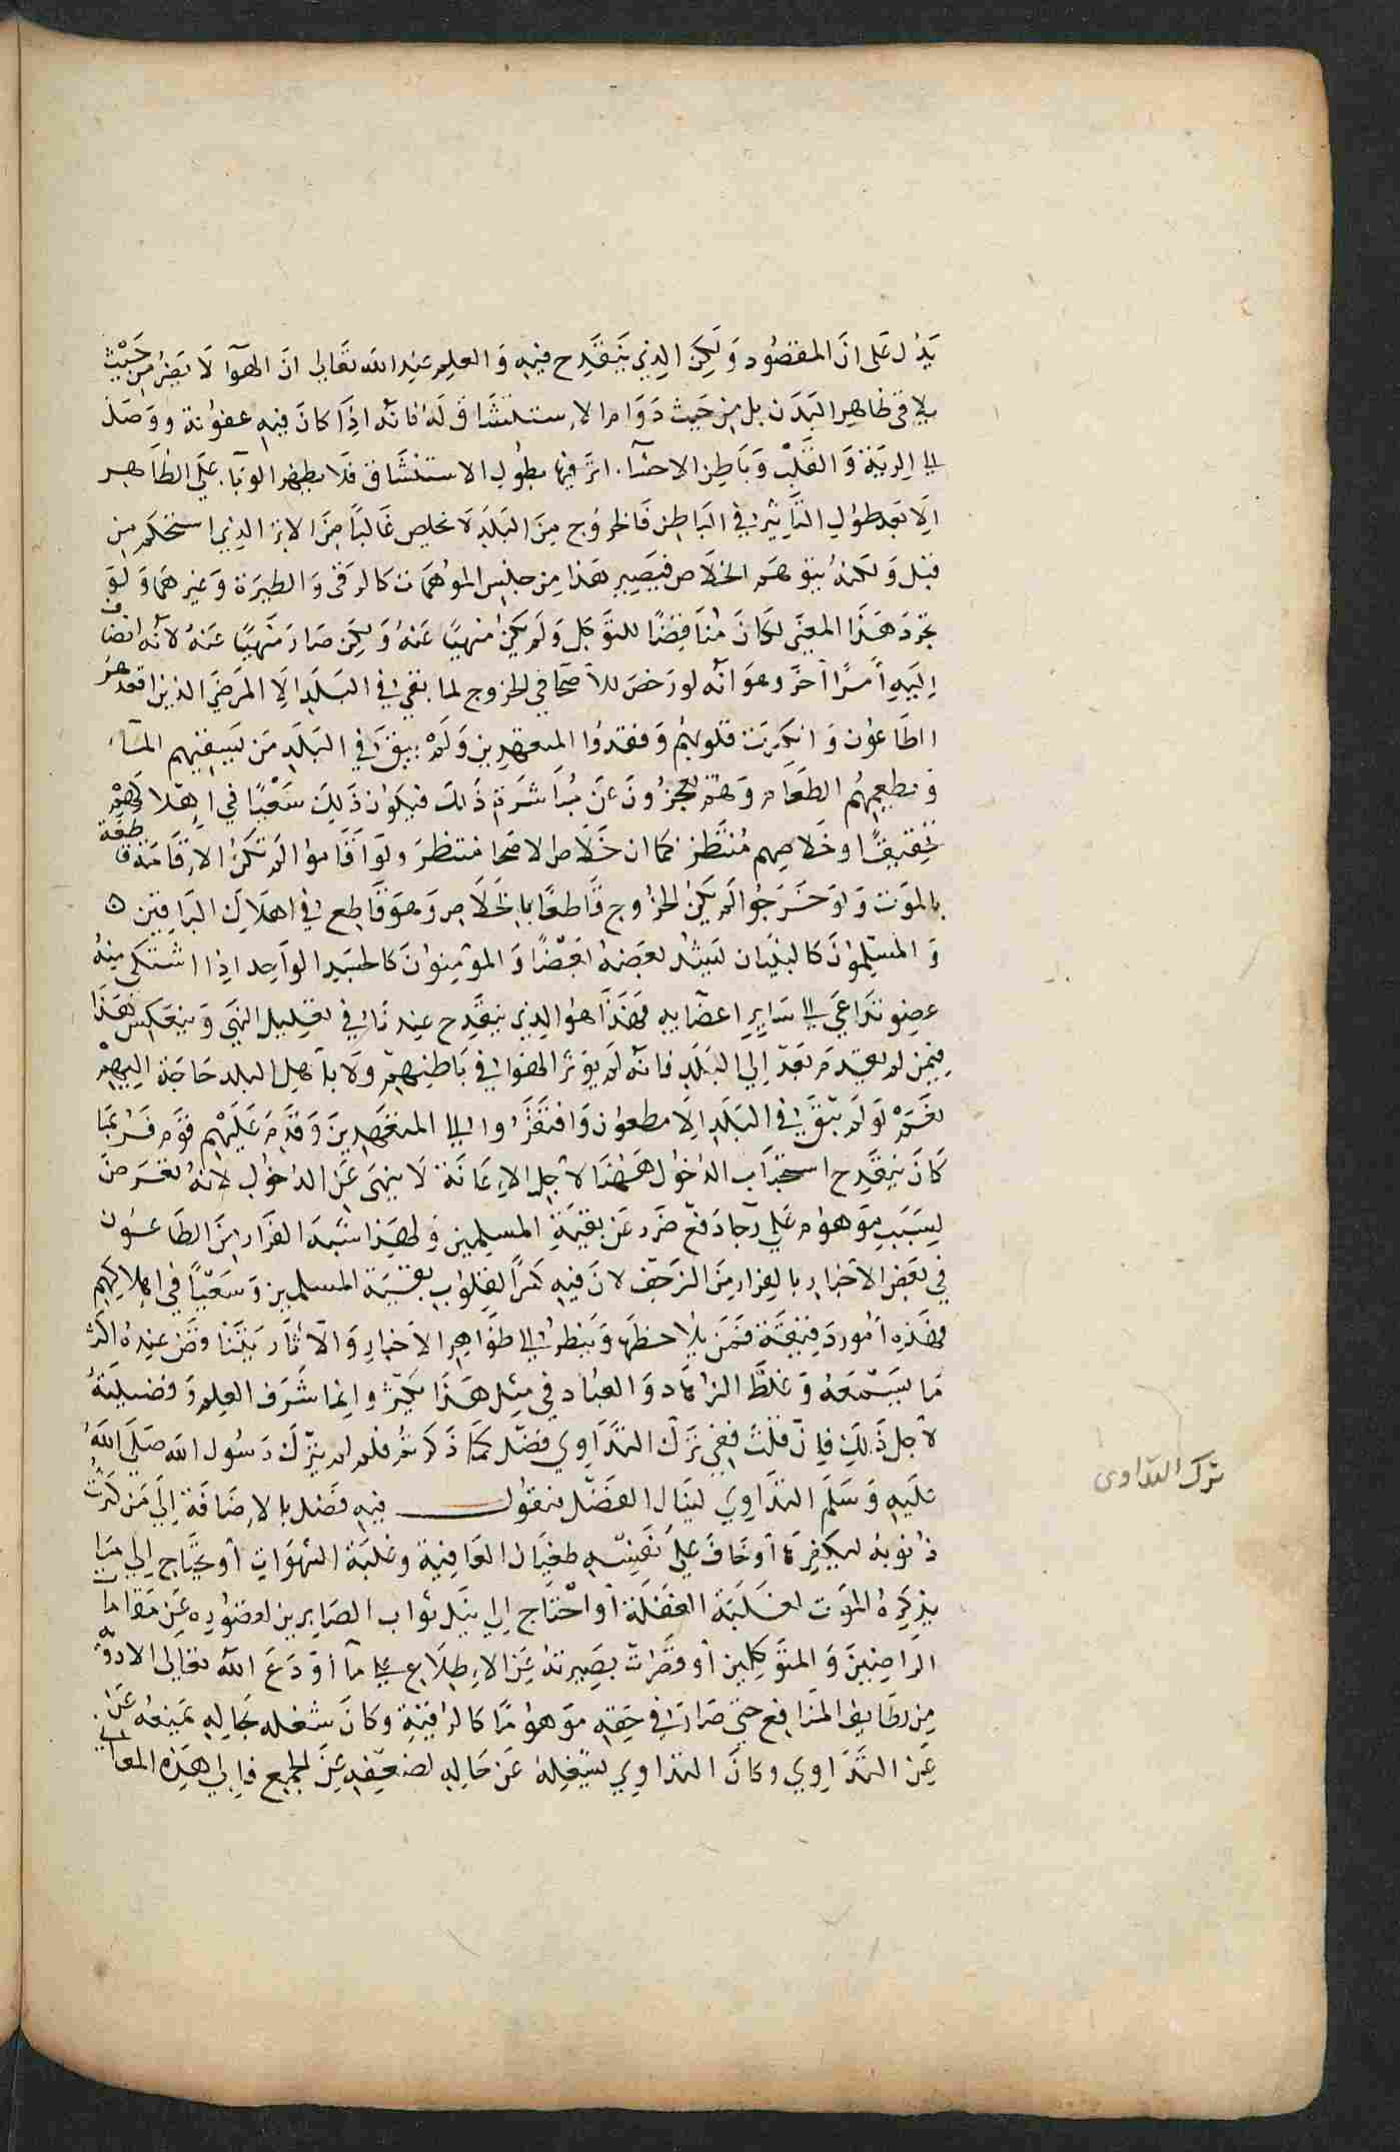 يَدُل عَلى انَ المقصُود وَلَكِن الذِي يَنقَدِح فيهِ وَالعِلم عِندَ الله تعَالى انَ الهَوآ لَا يَضُر مِن حَيْث
يلَاقي ظاهِر البَدَن بل مِن حَيث دَوَام الاستنشَاق لَهُ فانَه اذَا كانَ فيهِ عفونَة ووَصَل
الى الرِيَة وَالقَلب وَبَاطِن الاحشَا اثَر فيهَا بطُول الاستنشَاق فلَا يظهر الوَبَا علَى الظاهِر
الَا بَعد طوُل التَاثير في البَاطِن فَالخروُج مِنَ البَلَدِ لَا يخلِص غَالبًا مِنَ الاثر الذِي استحكَم مِن
قبل وَلكنهُ يتوَهَم الخلَاص فيَصِير هَذا مِن جِنسِ الموُهمَات كالرقى وَالطيَرَة وَغيرِهمَا وَلَو
تجَرد هَذَا المعنَى لكَانَ مُنَافِضًا للتوَكل وَلَم يَكُن مَنهيًا عَنهُ وَلَكِن صَارَ مَنهيًا عَنهُ لانَه انضَاف
اِليَهِ أَمرًا آخَر وهوَ انَه لو رَخصَ للاَصحَا في الخروج لما بقي في البَلَدِ الَا المَرضَى الذِين اقعدهم
الطَاعوُن وَانكسَرَت قلوبُهم وَفقدُوا المتعَهدِين وَلَمْ يبقَ في البَلَدِ مَن يَسقيهم المَآ
وَيطعمِهُم الطعَام وَهُم يَعجزُونَ عَن مُبَاشَرَة ذَلكَ فيكوُن ذَلِكَ سَعْيًا في اِهلَاكِهِم
تحقيقًا وخَلَاصِهم مُنتَظر كمَا ان خَلَاص الاصَحا منتظرَ ولوَ اقَاموا لَم تكُن الاِقَامَة قاطعَة
بالموَت وَلَو خَرَجُوا لَم يَكُن الخرُوج قَاطعًا بالخَلَاص وَهوَ قَاطع في اهلَاك البَاقِين ه
وَالمسْلِموُنَ كَالبنيَان يَشُد بعضهُ بَعضًا وَالموُمِنوُنَ كالجسَدِ الوَاحِد اذا اشتَكى مِنهُ
عضو تدَاعَى الى سَايِرِ اعضَايهِ فهَذَا هوَ الذِي يَنقَدِح عِندنَا في تعليل النهي وَينعَكِس هَذَا
فِيمَن لم يقدم بَعد اِلى البَلَدِ فانَه لَم يوَثر الهَوَا في بَاطِنهِم وَلَا بأهل البلد حَاجَة اِليهِمْ
نَعَمْ لَو لَم يَبقَ في البَلَدِ الَا مطعوُن وَافتقَرُوا الى المتعَهدِينَ وَقَدِمَ عَليَهِم قوَم فرُبَما
كَانَ يَنقَدِح استحبَاب الدخُول هَهُنَا لأجل الاِعَانَة لَا ينهَى عَنِ الدخول لانهُ تعَرض
لِسَبَبٍ مَوهوُم عَلى رجَا دَفع ضَرَر عَن بَقيَة المسِلمِين وَلهَذا شَبهَ الفرَار مِنَ الطَاعوُن
في بَعضِ الاَخبَار بالفِرار مِنَ الزحف لانَ فيهِ كَسرًا لقِلوُب بَقيَة المسلمين وَسَعيًا في اهلاكِهِم
فهَذِه أمُور دَقيقَة فمَن يُلَاحظها وَينظر الى ظوَاهِر الاخبَارِ وَالآثَار يتناقَض عِندهُ اكثر
مَا يَسمَعهُ وَغلَط الزهَاد وَالعُبَاد في مِثل هَذَا يَكثر وانما شَرَف العِلم وَفضيلَتهُ
لأجلِ ذَلِكَ فاِن قلتَ ففي تَرك التدَاوي فضل كمَا ذَكرتُم فلِم لم يَترك رَسُول الله صَلى الله
عَليَهِ وَسَلَم التدَاوِي لينَال الفَضل فنقوُل فيهِ فَضل بالاِضَافَة اِلَى مَن كثرَت
ذنوبهُ ليكفرَهَا أو خَافَ عَلى نفسِهِ طغيَان العَافِيَة وَغَلبَة الشهوَاتِ أو يحتَاج اِلى مَا
يذَكِرهُ الموَت لِغَلَبَة الغفلَة أو احتَاج اِلى نَيل ثوَاب الصَابرِين لقصُوره عَن مقَامَات
الرَاضِينَ وَالمتوَكِلِين أو قصُرَت بَصِيرَتهُ عَن الاِطِلَاع على مَا أودَعَ اللهُ تعَالى الادويَة
مِن لطَايِف المنَافِع حَتى صَارَت في حَقهِ موَهوُمًا كالرُقيَة وَكانَ شغله بحَالِهِ يمَنعهُ عَن
عَنِ التدَاوِي وكانَ التدَاوِي يَشغِلهُ عَن حَالِهِ لضعفِه عَن الجمِع فاِلى هَذِه المعَاني
ترك التداوى